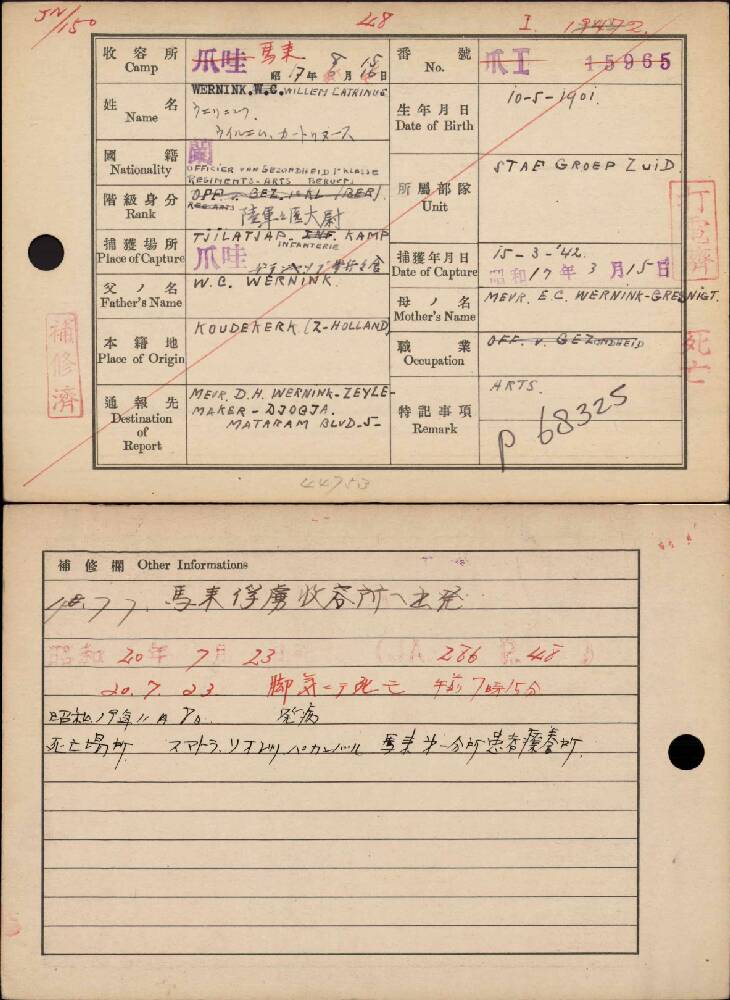 JN/150
48
I. 19472.
收容所 Camp
爪哇 馬来
昭17年8月15日
番號 No.
爪I 15965
姓名 Name
WERNINK.W.C. WILLEM CATRINUS
ウエルニンク
ウイルレム、カートリヌース
生年月日 Date of Birth
10-5-1901.
國籍 Nationality
蘭
階級身分 Rank
OFFICIER VAN GEZONDHEID 1e KLASSE
REGIMENTS-ARTS BEROEPS
OFF. v. GEZ. 1e KL. (BER).
REG ARTS
陸軍上医大尉
所屬部隊 Unit
STAF GROEP ZUID
捕獲場所 Place of Capture
TJILATJAP. INF. KAMP
INFANTERIE
爪哇
捕獲年月日 Date of Capture
15-3-'42.
昭和17年3月15日
父ノ名 Father's Name
W.C. WERNINK.
母ノ名 Mother's Name
MEVR. E.C. WERNINK-GREENIGT.
本籍地 Place of Origin
KOUDEKERK. (Z-HOLLAND)
職業 Occupation
OFF. v. GEZONDHEID
ARTS.
通報先 Destination of Report
MEVR. D.H. WERNINK-ZEYLE-
MAKER-DJOGJA.
MATARAM BLVD-5-
特記事項 Remark
P 68325
打電濟
死亡
補修濟
44753
補修欄 Other Informations
18.7.7. 馬来俘虜收容所へ出発
昭和20年7月23 286 R. 48
20.7.23. 脚気ニテ死亡 午前7時15分
昭和19年11月 発病
死亡場所 スマトラ、リオ州パカンバル 馬来第一分所患者療養所